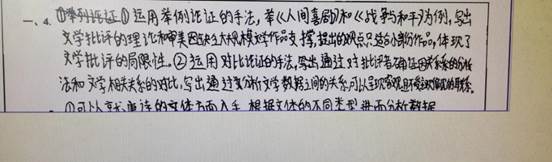 一、4. ①举例论证①运用举例论证的手法，举《人间喜剧》和《战争与和平》为例，写出
文学批评的理论和审美因缺乏大规模文学作品支撑，提出的观点只适合小部分作品，体现了
文学批评的局限性。②运用对比论证的手法，写出通过对批评者确证因果关系的分析
法和文学相关关系的对比，写出通过分析文学数据之间的关系，可以呈现客观且不易发现的联系。
①可以